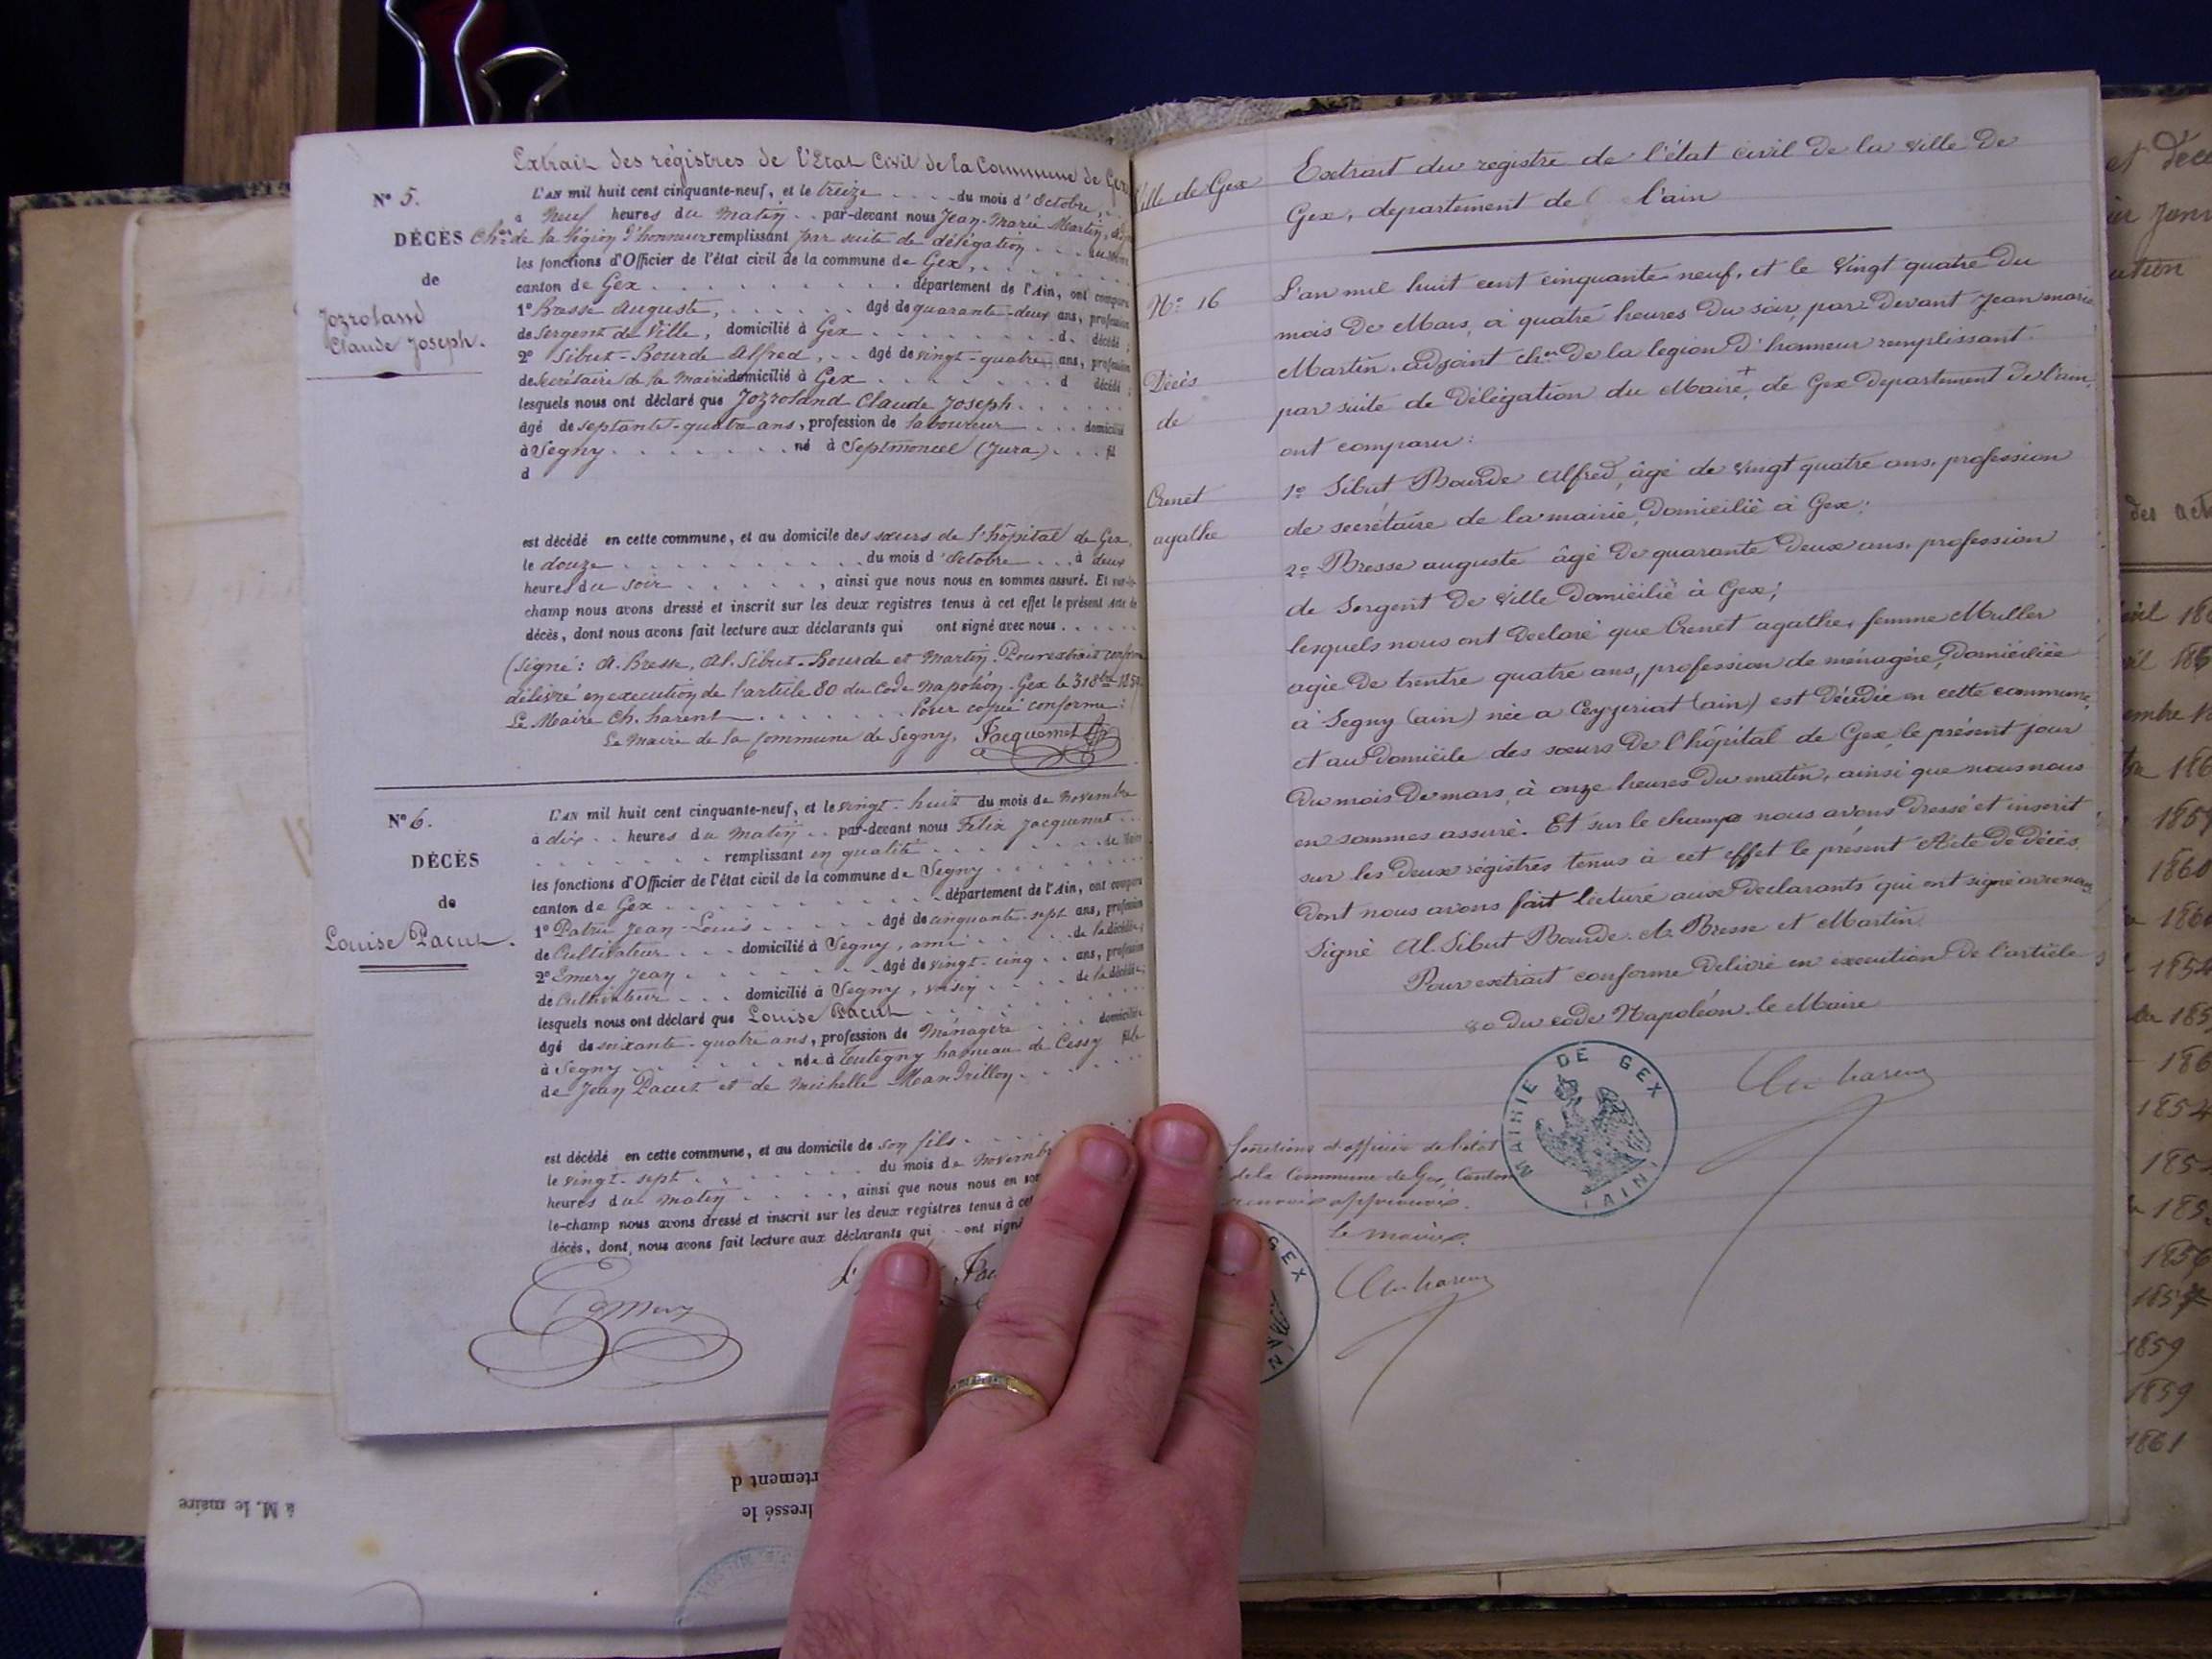 Extrait des régistres de l'Etat Civil de la Commune de Gex
N° 5.
L'AN mil huit cent cinquante-neuf, et le treize . . . . du mois d'Octobre,
à Neuf heures du Matin . . par-devant nous Jean-Marie Martin,
DÉCÈS
Ch.er de la légion d'honneur remplissant par suite de délégation . . .
de
les fonctions d'Officier de l'état civil de la commune de Gex,
canton de Gex . . . . département de l'Ain, ont comparu
Jozroland
Claude Joseph.
1° Bresse Auguste, . . . . âgé de quarante-deux ans, profession
de Sergent de Ville, domicilié à Gex . . . . d. décédé;
2° Sibut-Bourde Alfred, . . âgé de vingt-quatre ans, profession
de Secrétaire de la Mairie domicilié à Gex . . . . d décédé;
lesquels nous ont déclaré que Jozroland Claude Joseph.
âgé de septante-quatre ans, profession de laboureur . . . domicilié
à Segny . . . . né à Septmoncel (Jura) . . . fil
d
est décédé en cette commune, et au domicile des sœurs de l'hôpital de Gex,
le douze . . . . du mois d'Octobre . . . à deux
heures du soir . . . . , ainsi que nous nous en sommes assuré. Et sur-le-
champ nous avons dressé et inscrit sur les deux registres tenus à cet effet le présent acte de
décès, dont nous avons fait lecture aux déclarants qui ont signé avec nous . . . .
(Signé: A. Bresse, Al. Sibut-Bourde et Martin. Pour extrait conforme
délivré en execution de l'article 80 du Code Napoléon. Gex le 31 8bre 1859.
Le Maire Ch. harent . . . . Pour copie conforme:
Le Maire de la Commune de Segny, Jacquemet
N° 6.
L'AN mil huit cent cinquante-neuf, et le vingt-huit du mois de Novembre
à dix . . heures du Matin . . par-devant nous Félix Jacquemet . . .
DÉCÈS
remplissant en qualité . . . . de Maire
les fonctions d'Officier de l'état civil de la commune de Segny . . .
de
canton de Gex . . . . département de l'Ain, ont comparu
Louise Pacut.
1° Patru Jean-Louis . . . . âgé de cinquante-sept ans, profession
de Cultivateur . . . domicilié à Segny, ami . . . . de la décédée;
2° Emery Jean . . . . âgé de vingt-cinq . . ans, profession
de Cultivateur . . . domicilié à Segny, voisin . . . . de la décédée;
lesquels nous ont déclaré que Louise Pacut . . . .
âgé de soixante-quatre ans, profession de Ménagère . . . domiciliée
à Segny . . . . née à Tutegny hameau de Cessy fille
de Jean Pacut et de Michelle Mandrillon . . . .
est décédé en cette commune, et au domicile de son fils . . . .
le vingt-sept . . . . du mois de Novembre
heures du matin . . . . , ainsi que nous nous en som
le-champ nous avons dressé et inscrit sur les deux registres tenus à cet
décès, dont nous avons fait lecture aux déclarants qui ont signé
Emery
Ville de Gex
Extrait du registre de l'état civil de la ville de
Gex, departement de l'ain
N° 16
L'an mil huit cent cinquante neuf, et le vingt quatre du
mois de Mars, à quatre heures du soir, par devant Jean marie
Martin, adjoint ch.er de la legion d'honneur remplissant
Décès
de
par suite de délégation du Maire, + de Gex departement de l'ain,
ont comparu:
Crenet
agathe
1° Sibut Bourde Alfred, âgé de vingt quatre ans, profession
de secrétaire de la mairie, domicilié à Gex;
2° Bresse auguste âgé de quarante deux ans, profession
de Sergent de ville domicilié à Gex;
lesquels nous ont declaré que Crenet agathe, femme Muller
agée de trentre quatre ans, profession de ménagère, domiciliée
à Segny (ain) née a Ceyzeriat (ain) est décédée en cette commune,
et au domicile des sœurs de l'hôpital de Gex, le présent jour
du mois de mars, à onze heures du matin, ainsi que nous nous
en sommes assuré. Et sur le champ nous avons dressé et inscrit
sur les deux régistres tenus à cet effet le présent Acte de décès,
dont nous avons fait lecture aux declarants qui ont signé avec nous
Signé Al. Sibut Bourde. A. Bresse et Martin
Pour extrait conforme délivré en execution de l'article
80 du code Napoléon. le Maire
Ch. harent
MAIRIE DE GEX
(AIN)
fonctions d'officier de l'état
de la Commune de Gex, Canton
le maire.
Ch. harent
GEX
à M. le maire
rtement d
dressé le
1859
1859
1861